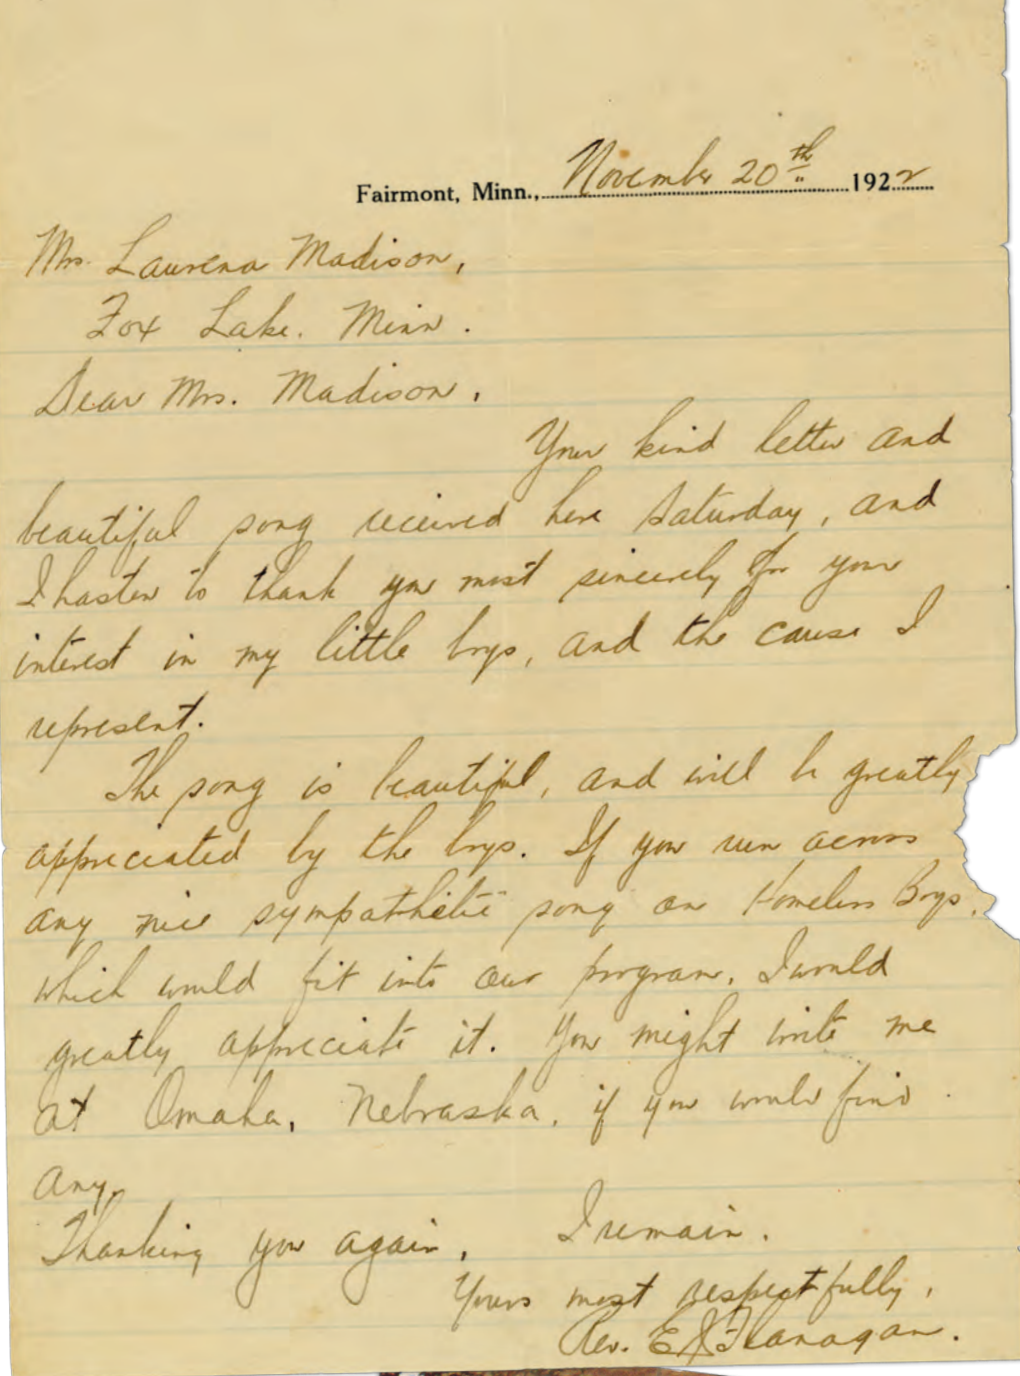 Fairmont, Minn., November 20th 1922
Mrs. Laurena Madison,
Fox Lake. Minn.
Dear Mrs. Madison,
Your kind letter and
beautiful song received here Saturday, and
I hasten to thank you most sincerely for your
interest in my little boys, and the cause I
represent.
The song is beautiful, and will be greatly
appreciated by the boys. If you run across
any nice sympathetic song on Homeless Boys,
which would fit into our program, I would
greatly appreciate it. You might write me
at Omaha, Nebraska, if you would find
any.
Thanking you again, I remain.
Yours most respectfully,
Rev. E J Flanagan.